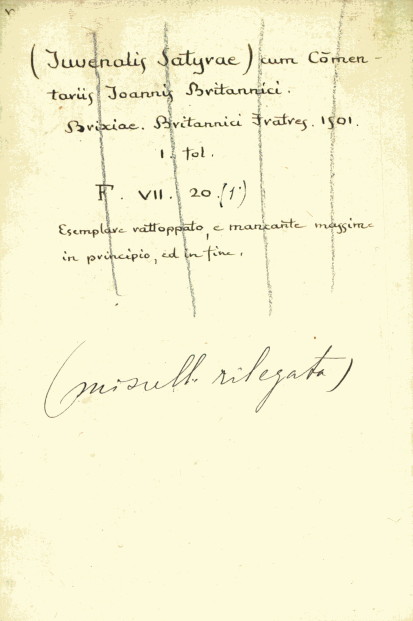 (Juvenalis Satyrae) cum Cōmen-
tariis Joannis Britannici.
Brixiae. Britannici Fratres. 1501.
1. fol.
F. VII. 20.(1°)
Esemplare rattoppato, e mancante massime
in principio, ed in fine.
(miscell. rilegata)